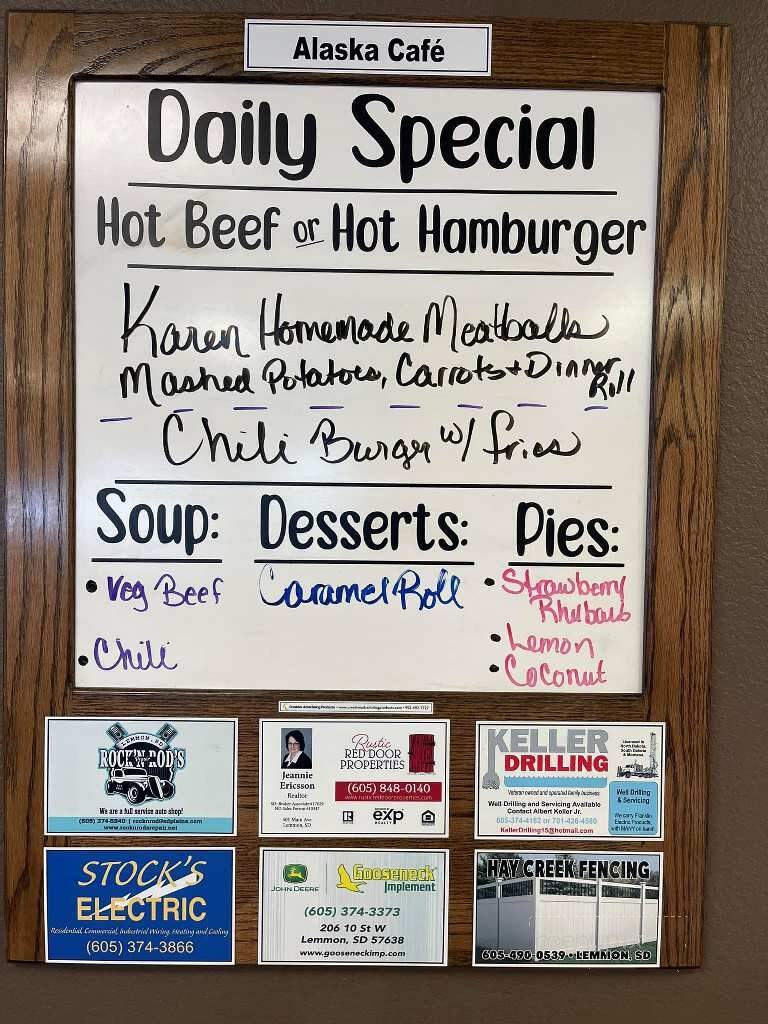 Alaska Café
Daily Special
Hot Beef or Hot Hamburger
Karen Homemade Meatballs
Mashed Potatoes, Carrots + Dinner
Roll
Chili Burger w/ fries
Soup:
• Veg Beef
• Chili
Desserts:
Caramel Roll
Pies:
• Strawberry
Rhubarb
• Lemon
• Coconut
LEMMON, SD
ROCK'N ROD'S
We are a full service auto shop!
www.rocknrodsrepair.net
Jeannie
Ericsson
Realtor
Lemmon, SD
Rustic
RED DOOR
PROPERTIES
(605) 848-0140
www.rusticreddoorproperties.com
exp
REALTY
KELLER
DRILLING
Licensed in
North Dakota,
South Dakota
& Montana
Veteran owned and operated family business
Well Drilling and Servicing Available
Contact Albert Keller Jr.
605-374-4162 or 701-426-4580
KellerDrilling15@hotmail.com
Well Drilling
& Servicing
We carry Franklin
Electric Products,
with MANY on hand!
STOCK'S
ELECTRIC
Residential, Commercial, Industrial Wiring, Heating and Cooling
(605) 374-3866
JOHN DEERE
Gooseneck
Implement
(605) 374-3373
206 10 St W
Lemmon, SD 57638
www.gooseneckimp.com
HAY CREEK FENCING
605-490-0539 • LEMMON, SD